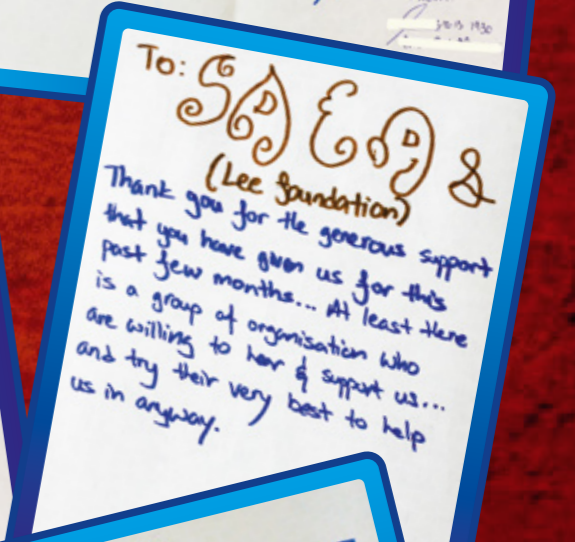 To: SAEA &
(Lee foundation)
Thank you for the generous support
that you have given us for this
past few months... At least there
is a group of organisation who
are willing to hear & support us...
and try their very best to help
us in anyway.
1930